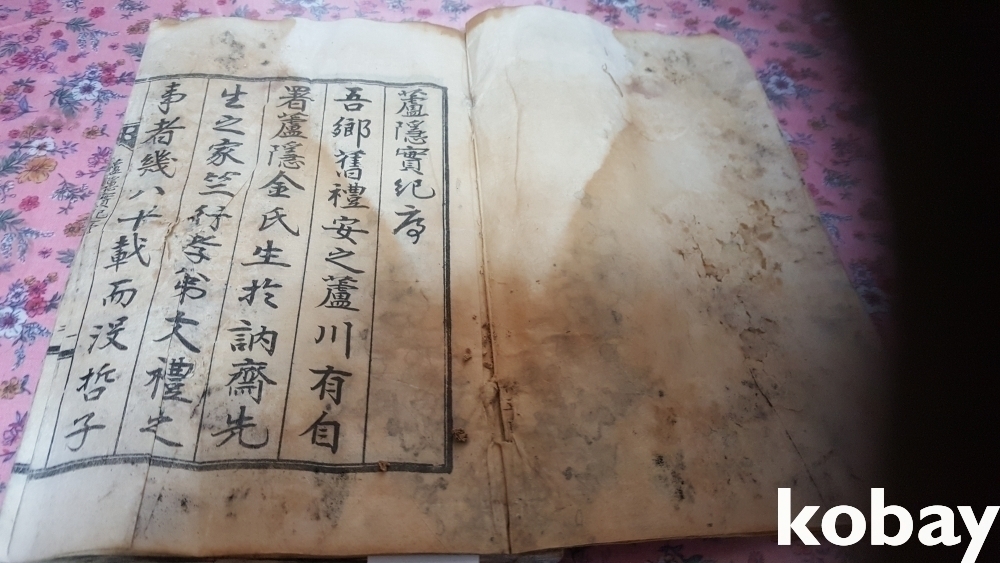 蘆隱實紀序
吾鄉舊禮安之蘆川有自
署蘆隱金氏生於訥齋先
生之家竺行孝弟禮
事者幾八十載而沒哲子
蘆隱實紀序
kobay